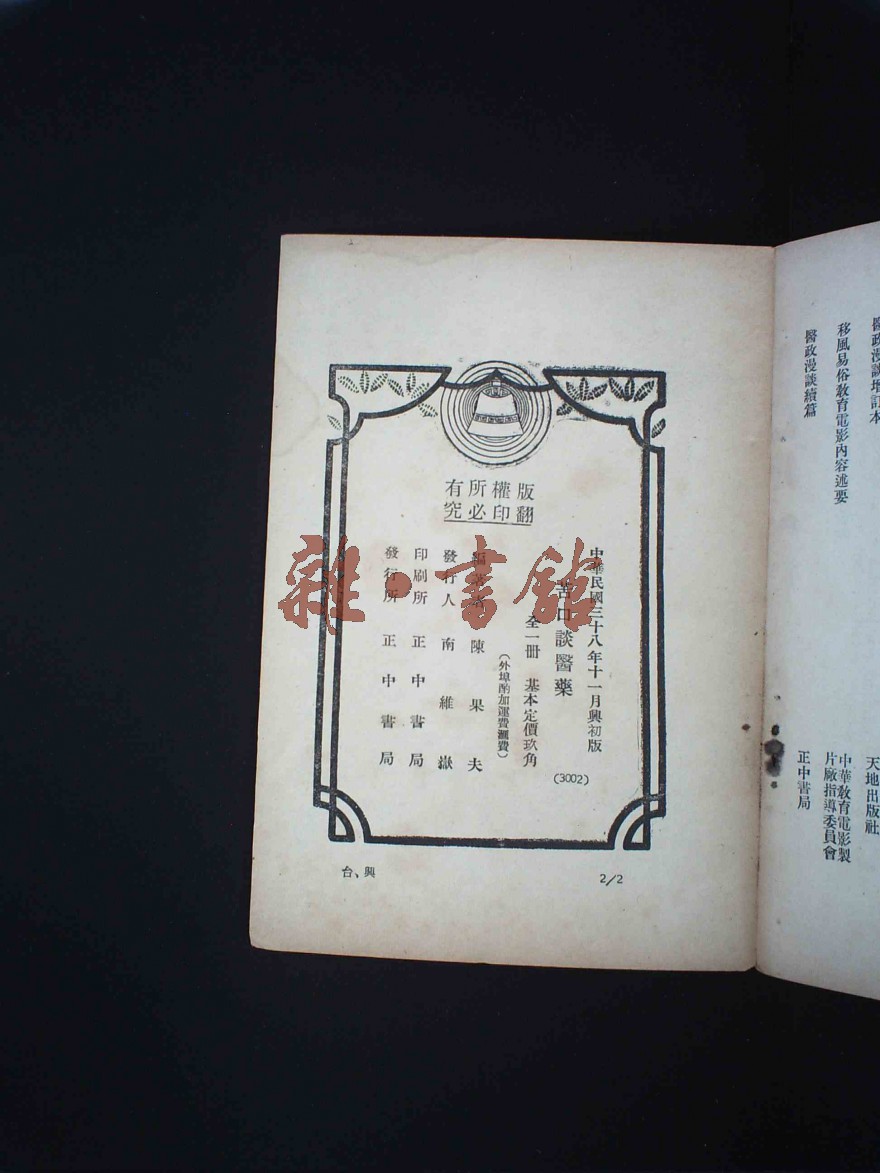 醫政漫談增訂本
天地出版社
移風易俗教育電影內容述要
中華教育電影製
片廠指導委員會
醫政漫談續篇
正中書局
版權所有
翻印必究
中華民國三十八年十一月興初版
苦口談醫藥
全一冊 基本定價玖角
(3002)
(外埠酌加運費滙費)
編著者 陳果夫
發行人 南維嶽
印刷所 正中書局
發行所 正中書局
台、興
2/2
雜·書館